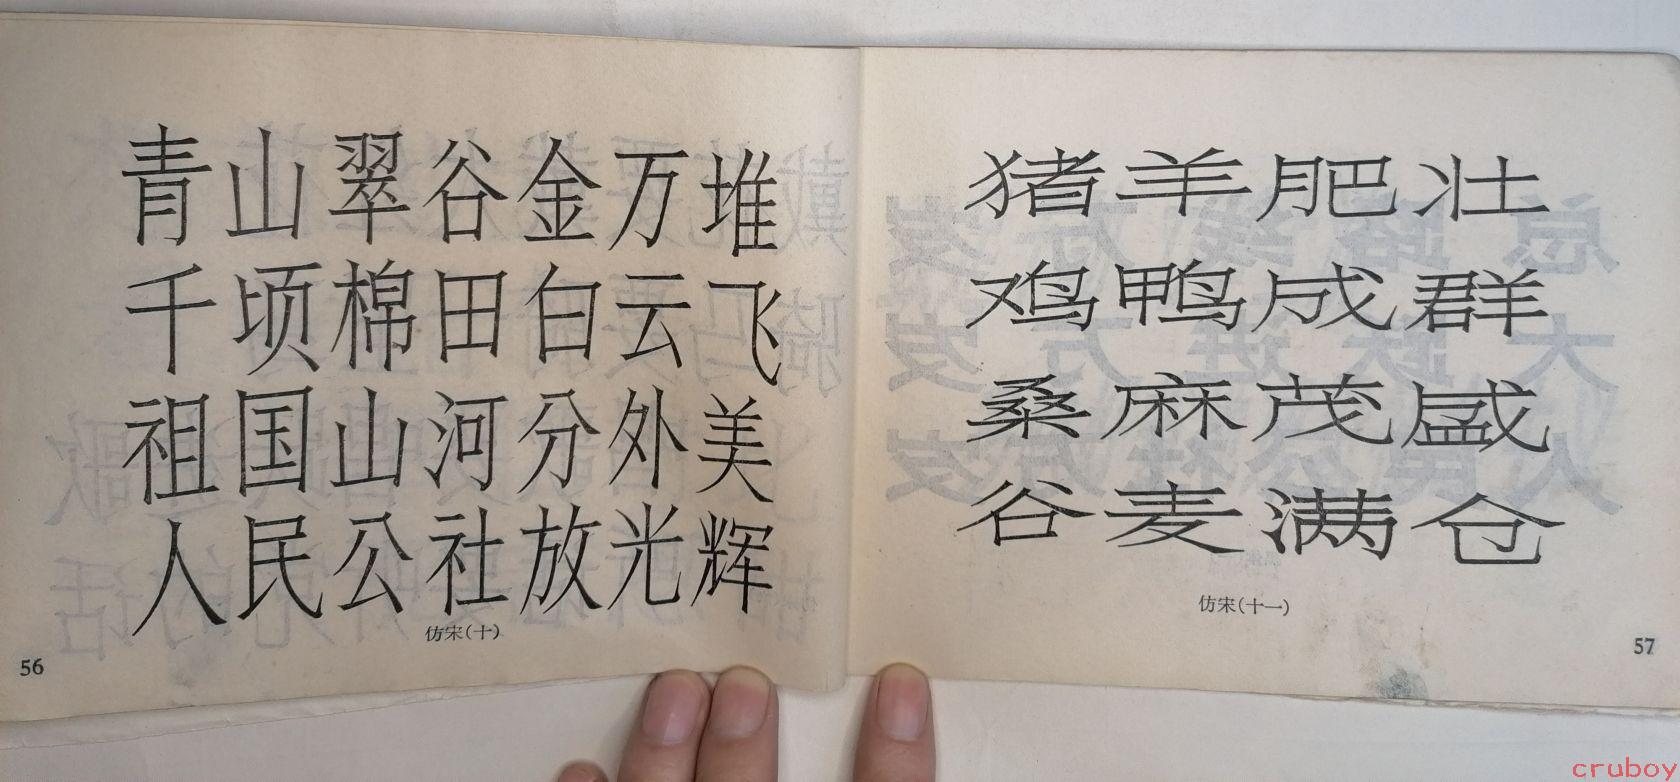 青山翠谷金万堆
千顷棉田白云飞
祖国山河分外美
人民公社放光辉
仿宋(十)
56
猪羊肥壮
鸡鸭成群
桑麻茂盛
谷麦满仓
仿宋(十一)
57
cruboy